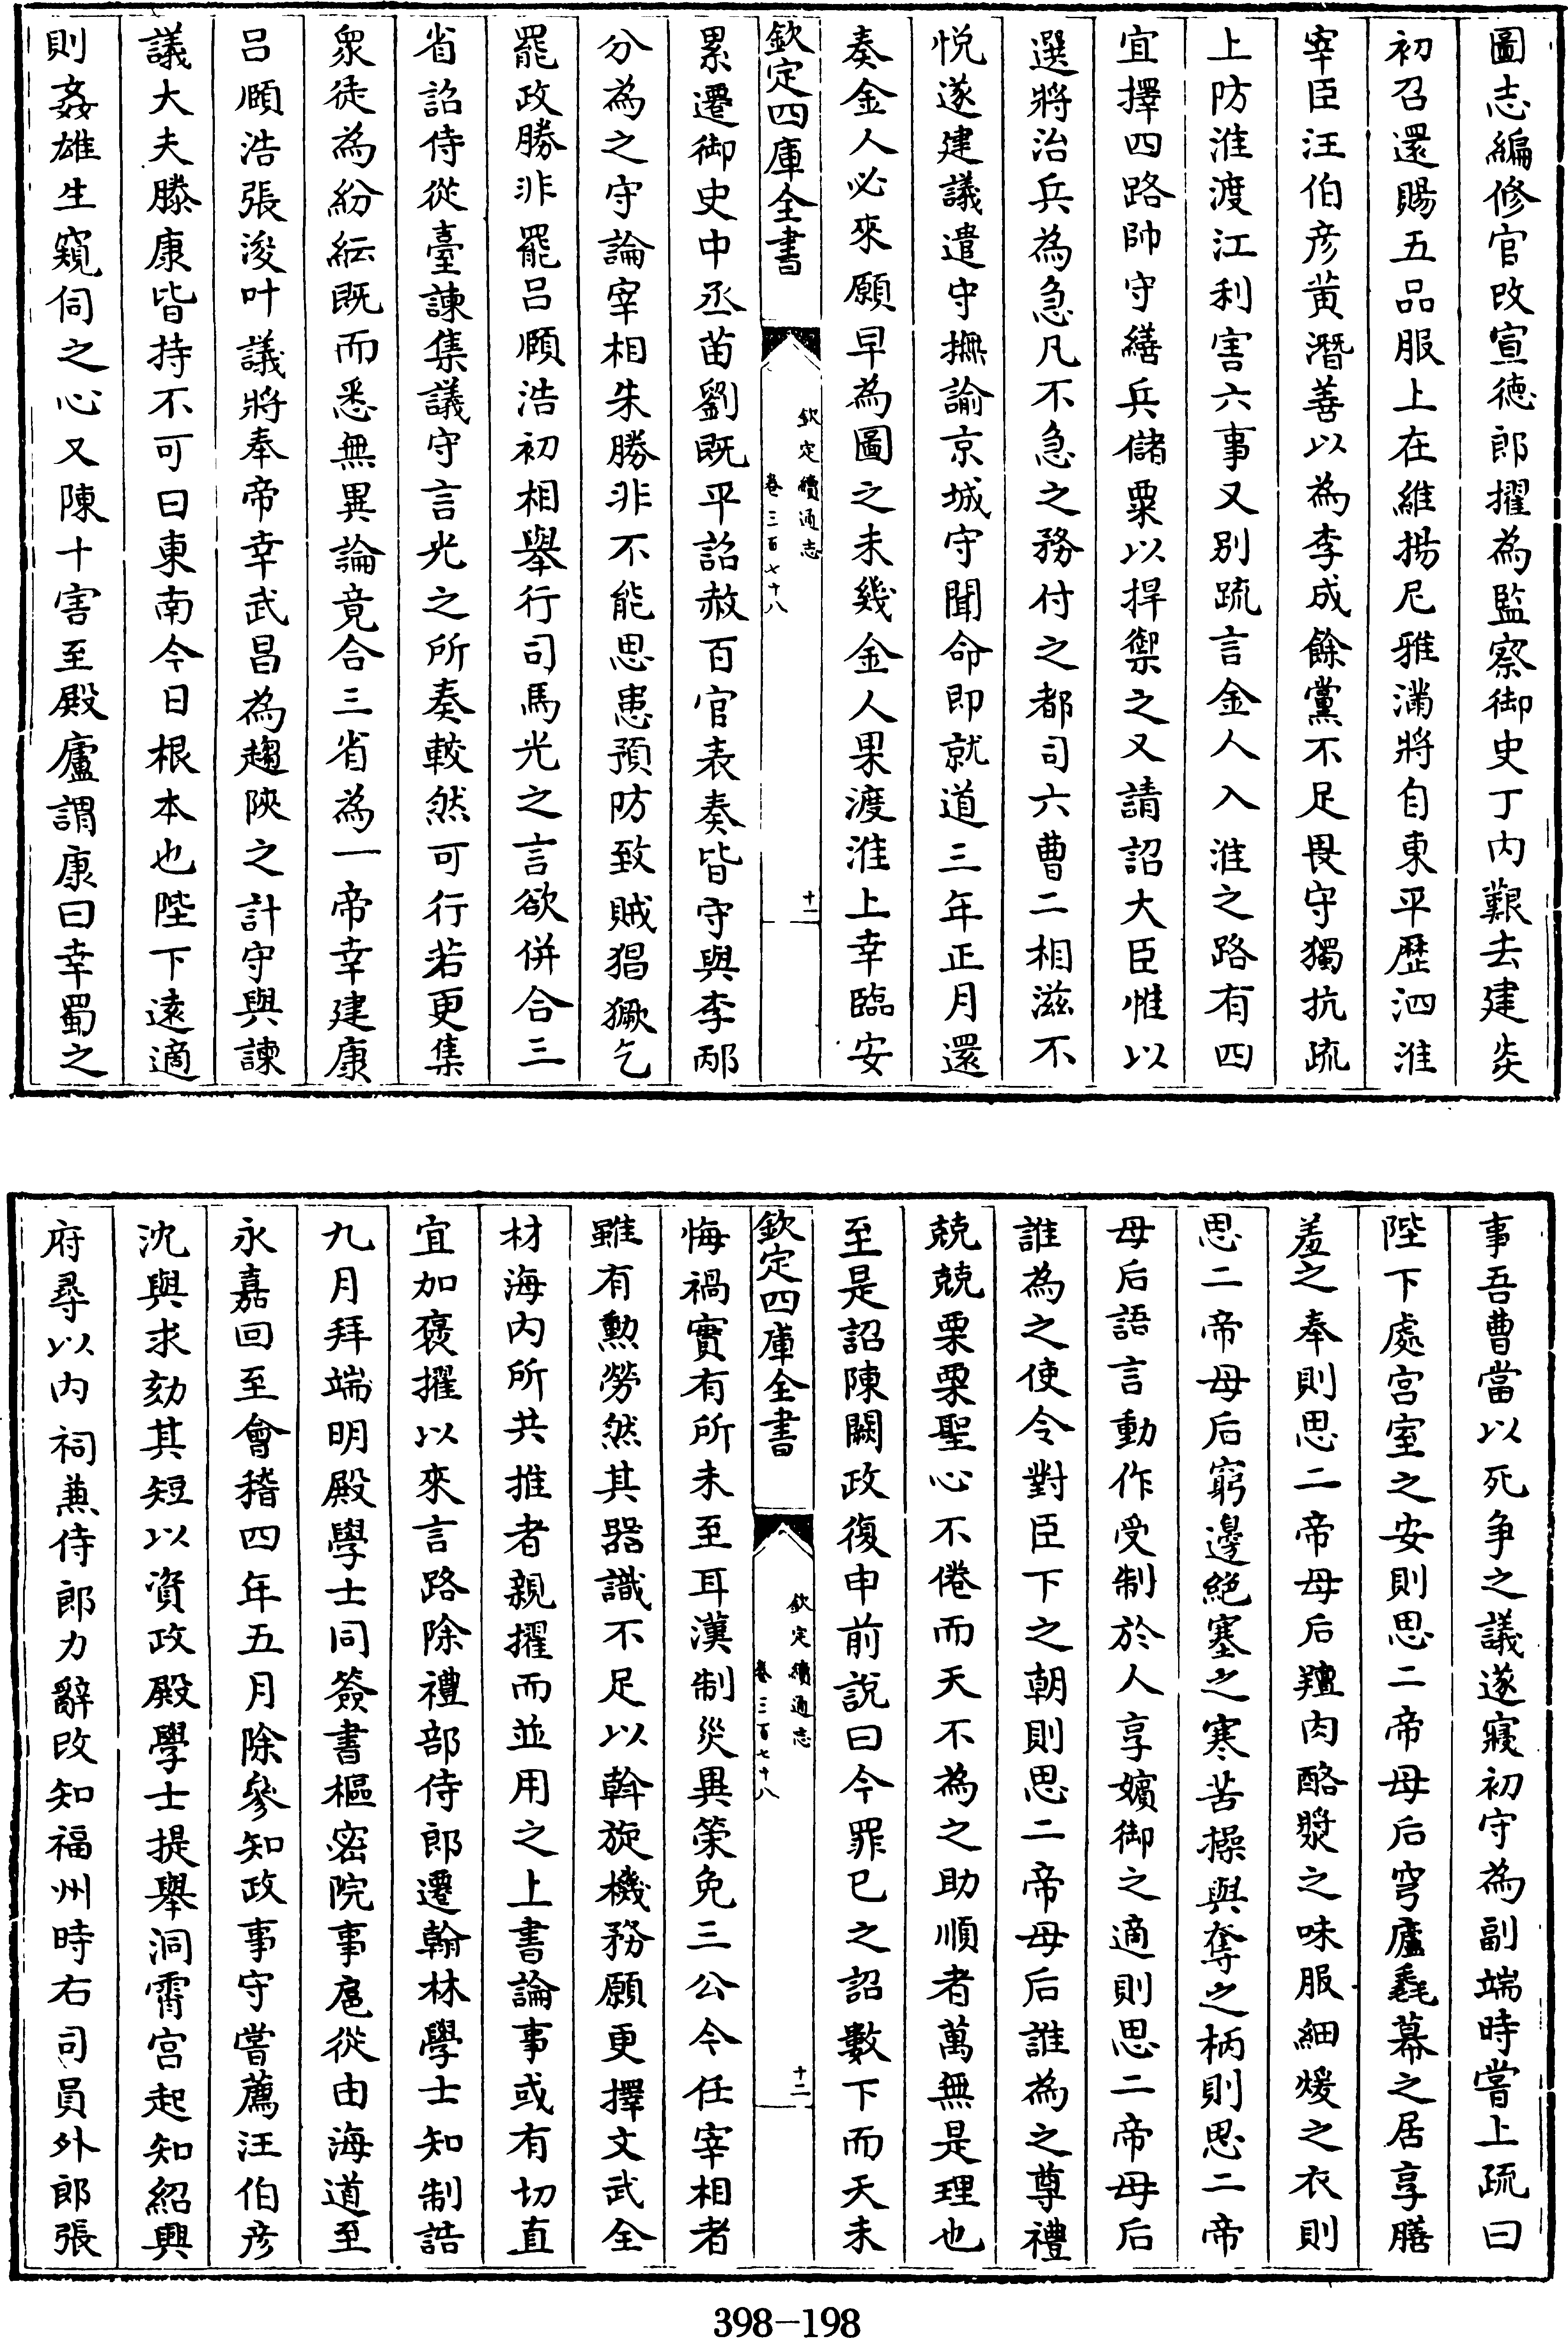 圖志編修官改宣德郎擢為監察御史丁内艱去建炎
初召還賜五品服上在維揚尼雅滿將自東平歴泗淮
宰臣汪伯彦黄潛善以為李成餘黨不足畏守獨抗疏
上防淮渡江利害六事又别疏言金人入淮之路有四
宜擇四路帥守繕兵儲粟以捍禦之又請詔大臣惟以
選將治兵為急凡不急之務付之都司六曹二相滋不
悦遂建議遣守撫諭京城守聞命即就道三年正月還
奏金人必來願早為圖之未幾金人果渡淮上幸臨安
欽定四庫全書
欽定續通志
卷三百七十八
十一
累遷御史中丞苗劉既平詔赦百官表奏皆守與李邴
分為之守論宰相朱勝非不能思患預防致賊猖獗乞
罷政勝非罷吕頤浩初相舉行司馬光之言欲併合三
省詔侍從臺諫集議守言光之所奏較然可行若更集
衆徒為紛紜既而悉無異論竟合三省為一帝幸建康
吕頤浩張浚叶議將奉帝幸武昌為趨陜之計守與諫
議大夫滕康皆持不可曰東南今日根本也陛下遠適
則姦雄生窺伺之心又陳十害至殿廬謂康曰幸蜀之
事吾曹當以死争之議遂寢初守為副端時嘗上疏曰
陛下處宫室之安則思二帝母后穹廬毳幕之居享膳
羞之奉則思二帝母后羶肉酪漿之味服細煖之衣則
思二帝母后窮邊絶塞之寒苦操與奪之柄則思二帝
母后語言動作受制於人享嬪御之適則思二帝母后
誰為之使令對臣下之朝則思二帝母后誰為之尊禮
兢兢栗栗聖心不倦而天不為之助順者萬無是理也
至是詔陳闕政復申前說曰今罪已之詔數下而天未
欽定四庫全書
欽定續通志
卷三百七十八
十二
悔禍實有所未至耳漢制災異策免三公今任宰相者
雖有勲勞然其器識不足以斡旋機務願更擇文武全
材海内所共推者親擢而並用之上書論事或有切直
宜加褒擢以來言路除禮部侍郎遷翰林學士知制誥
九月拜端明殿學士同簽書樞密院事扈從由海道至
永嘉回至會稽四年五月除參知政事守嘗薦汪伯彦
沈與求劾其短以資政殿學士提舉洞霄宫起知紹興
府尋以内祠兼侍郎力辭改知福州時右司員外郎張
398-198